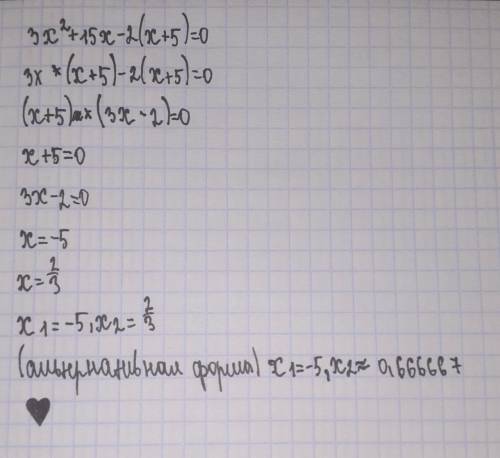 3x²+15x-2(x+5)=0
3x*(x+5)-2(x+5)=0
(x+5)*(3x-2)=0
x+5=0
3x-2=0
x=-5
x=2/3
x1=-5, x2=2/3
(альтернативная форма) x1=-5, x2≈0,666667
♥